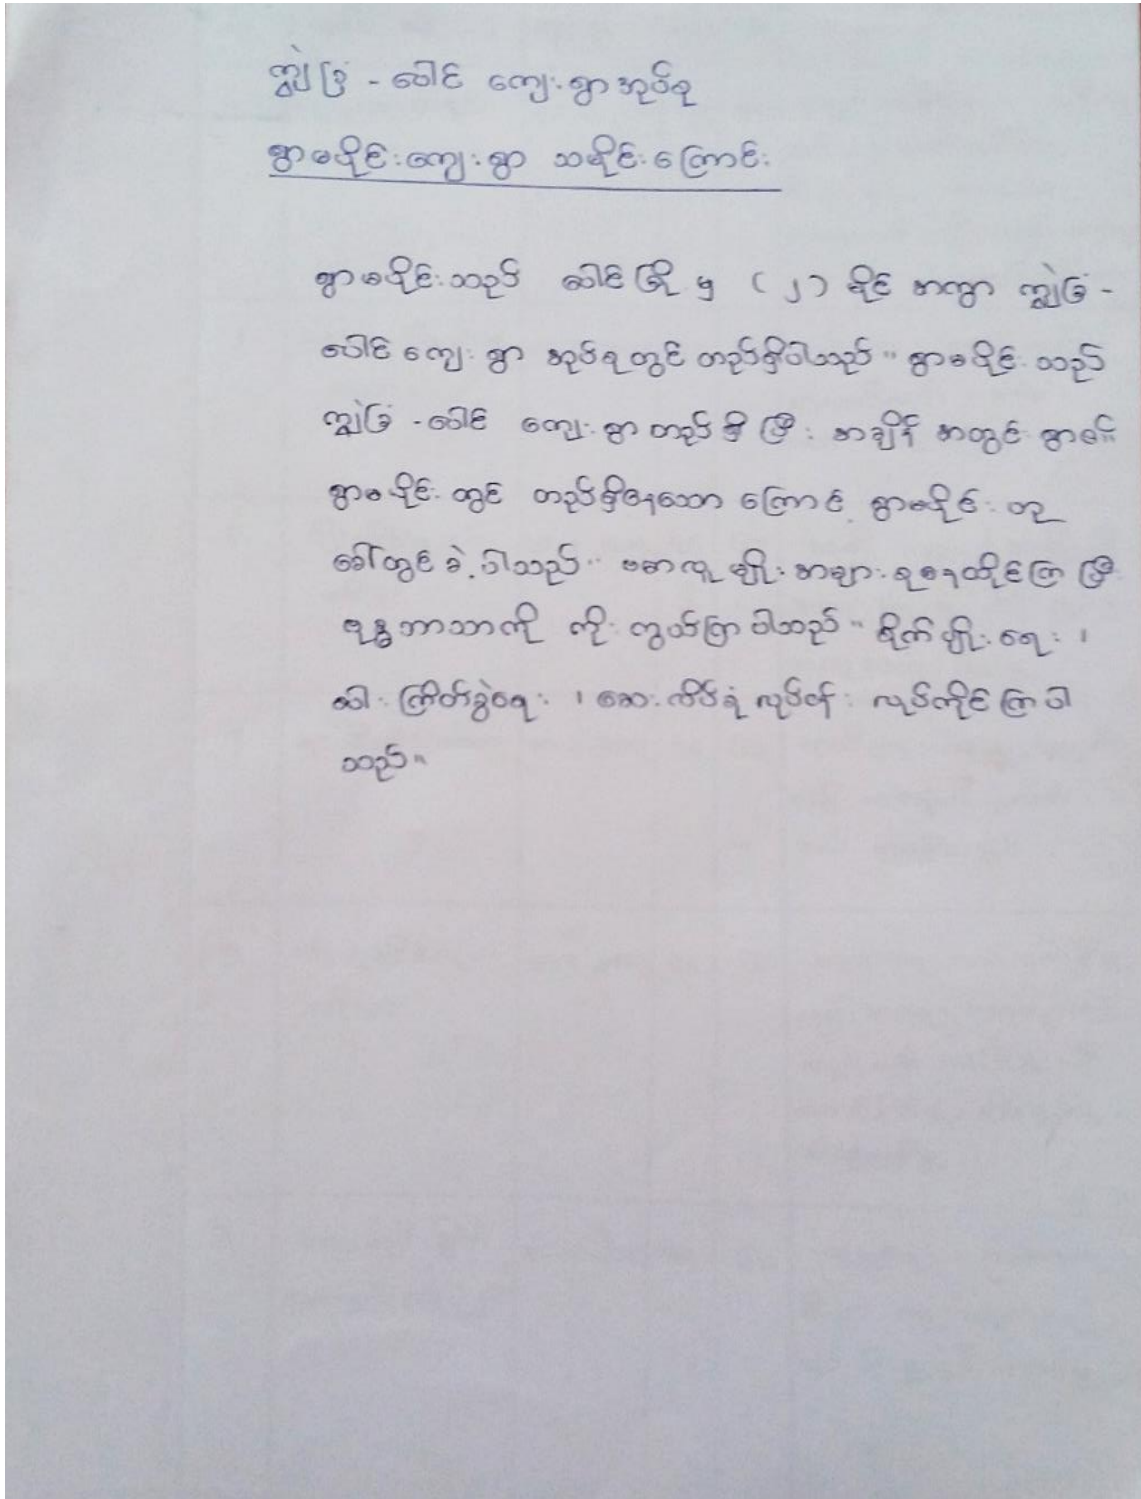 ကျွဲခြံ - ပေါင် ကျေးရွာအုပ်စု
ရွာမပိုင်းကျေးရွာ သမိုင်းကြောင်း
ရွာမပိုင်းသည် ပေါင်မြို့မှ (၂) မိုင် အကွာ ကျွဲခြံ -
ပေါင် ကျေးရွာ အုပ်စုတွင် တည်ရှိပါသည်။ ရွာမပိုင်း သည်
ကျွဲခြံ - ပေါင် ကျေးရွာ တည်ရှိပြီး အချိန် အတွင်း
ရွာမပိုင်း တွင် တည်ရှိနေသော ကြောင့် ရွာမပိုင်း ဟု
ခေါ်တွင် ခဲ့ပါသည်။ ဗမာလူမျိုး အများစု နေထိုင်ကြပြီး
ဗုဒ္ဓဘာသာကို ကိုးကွယ်ကြပါသည်။ စိုက်ပျိုးရေး ၊
ဝါးကြိတ်ခွဲရေး ၊ ဆေးလိပ်ခုံလုပ်ငန်း လုပ်ကိုင်ကြပါ
သည်။